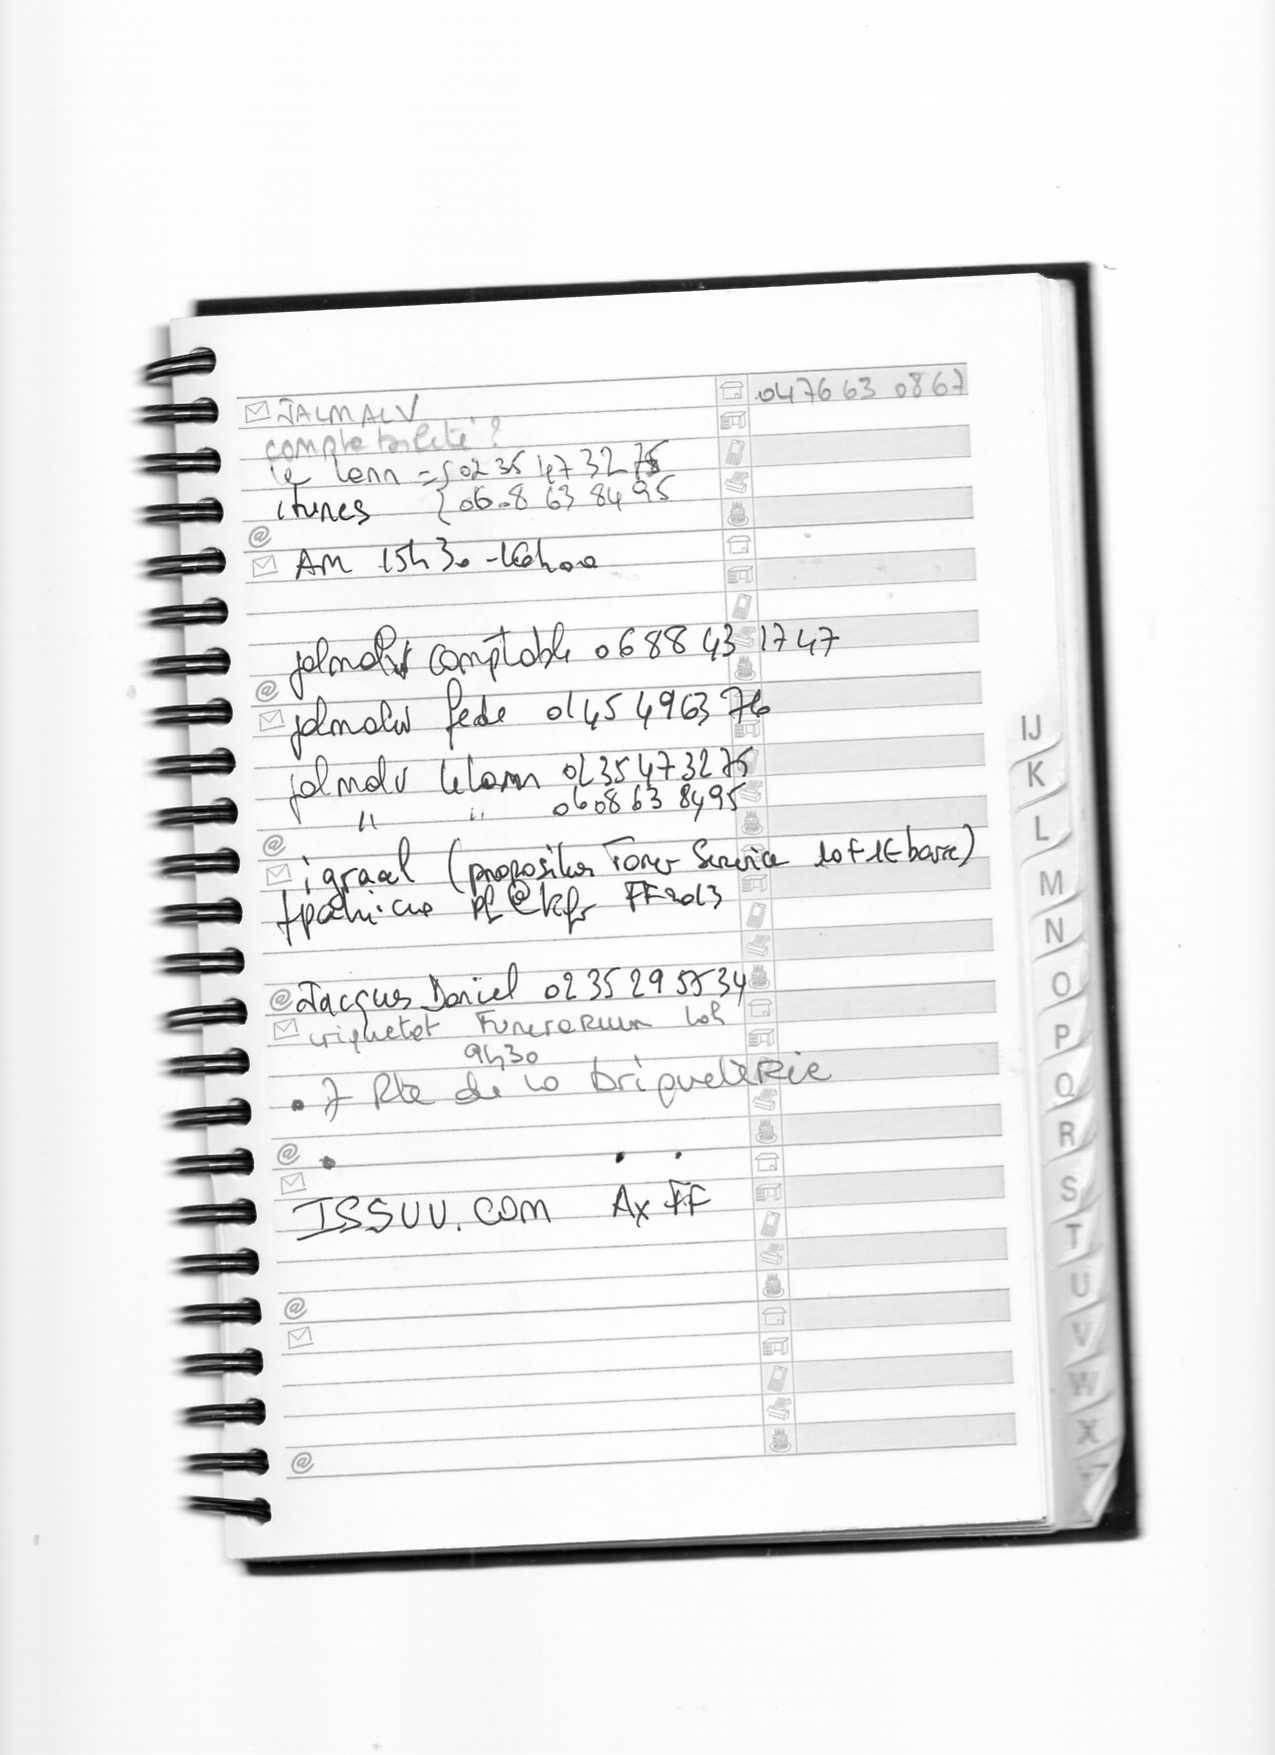 JALMALV 04 76 63 08 67
comptabilité ?
le lenn = { 02 35 47 32 75
itunes { 06.08 63 84 95
AM 15h30 - 16h00
jalmalv comptable 06 88 43 17 47
jalmalv fede 01 45 49 63 76
jalmalv lelann 02 35 47 32 75
" " 06 08 63 84 95
igraal ( Toner Service
FF2013
Jacques Daniel 02 35 29 57 34
criquetot Funerarium 10h
9h30
• 7 Rte de la briqueterie
ISSUU.COM Ax FF
IJ
K
L
M
N
O
P
Q
R
S
T
U
V
W
X